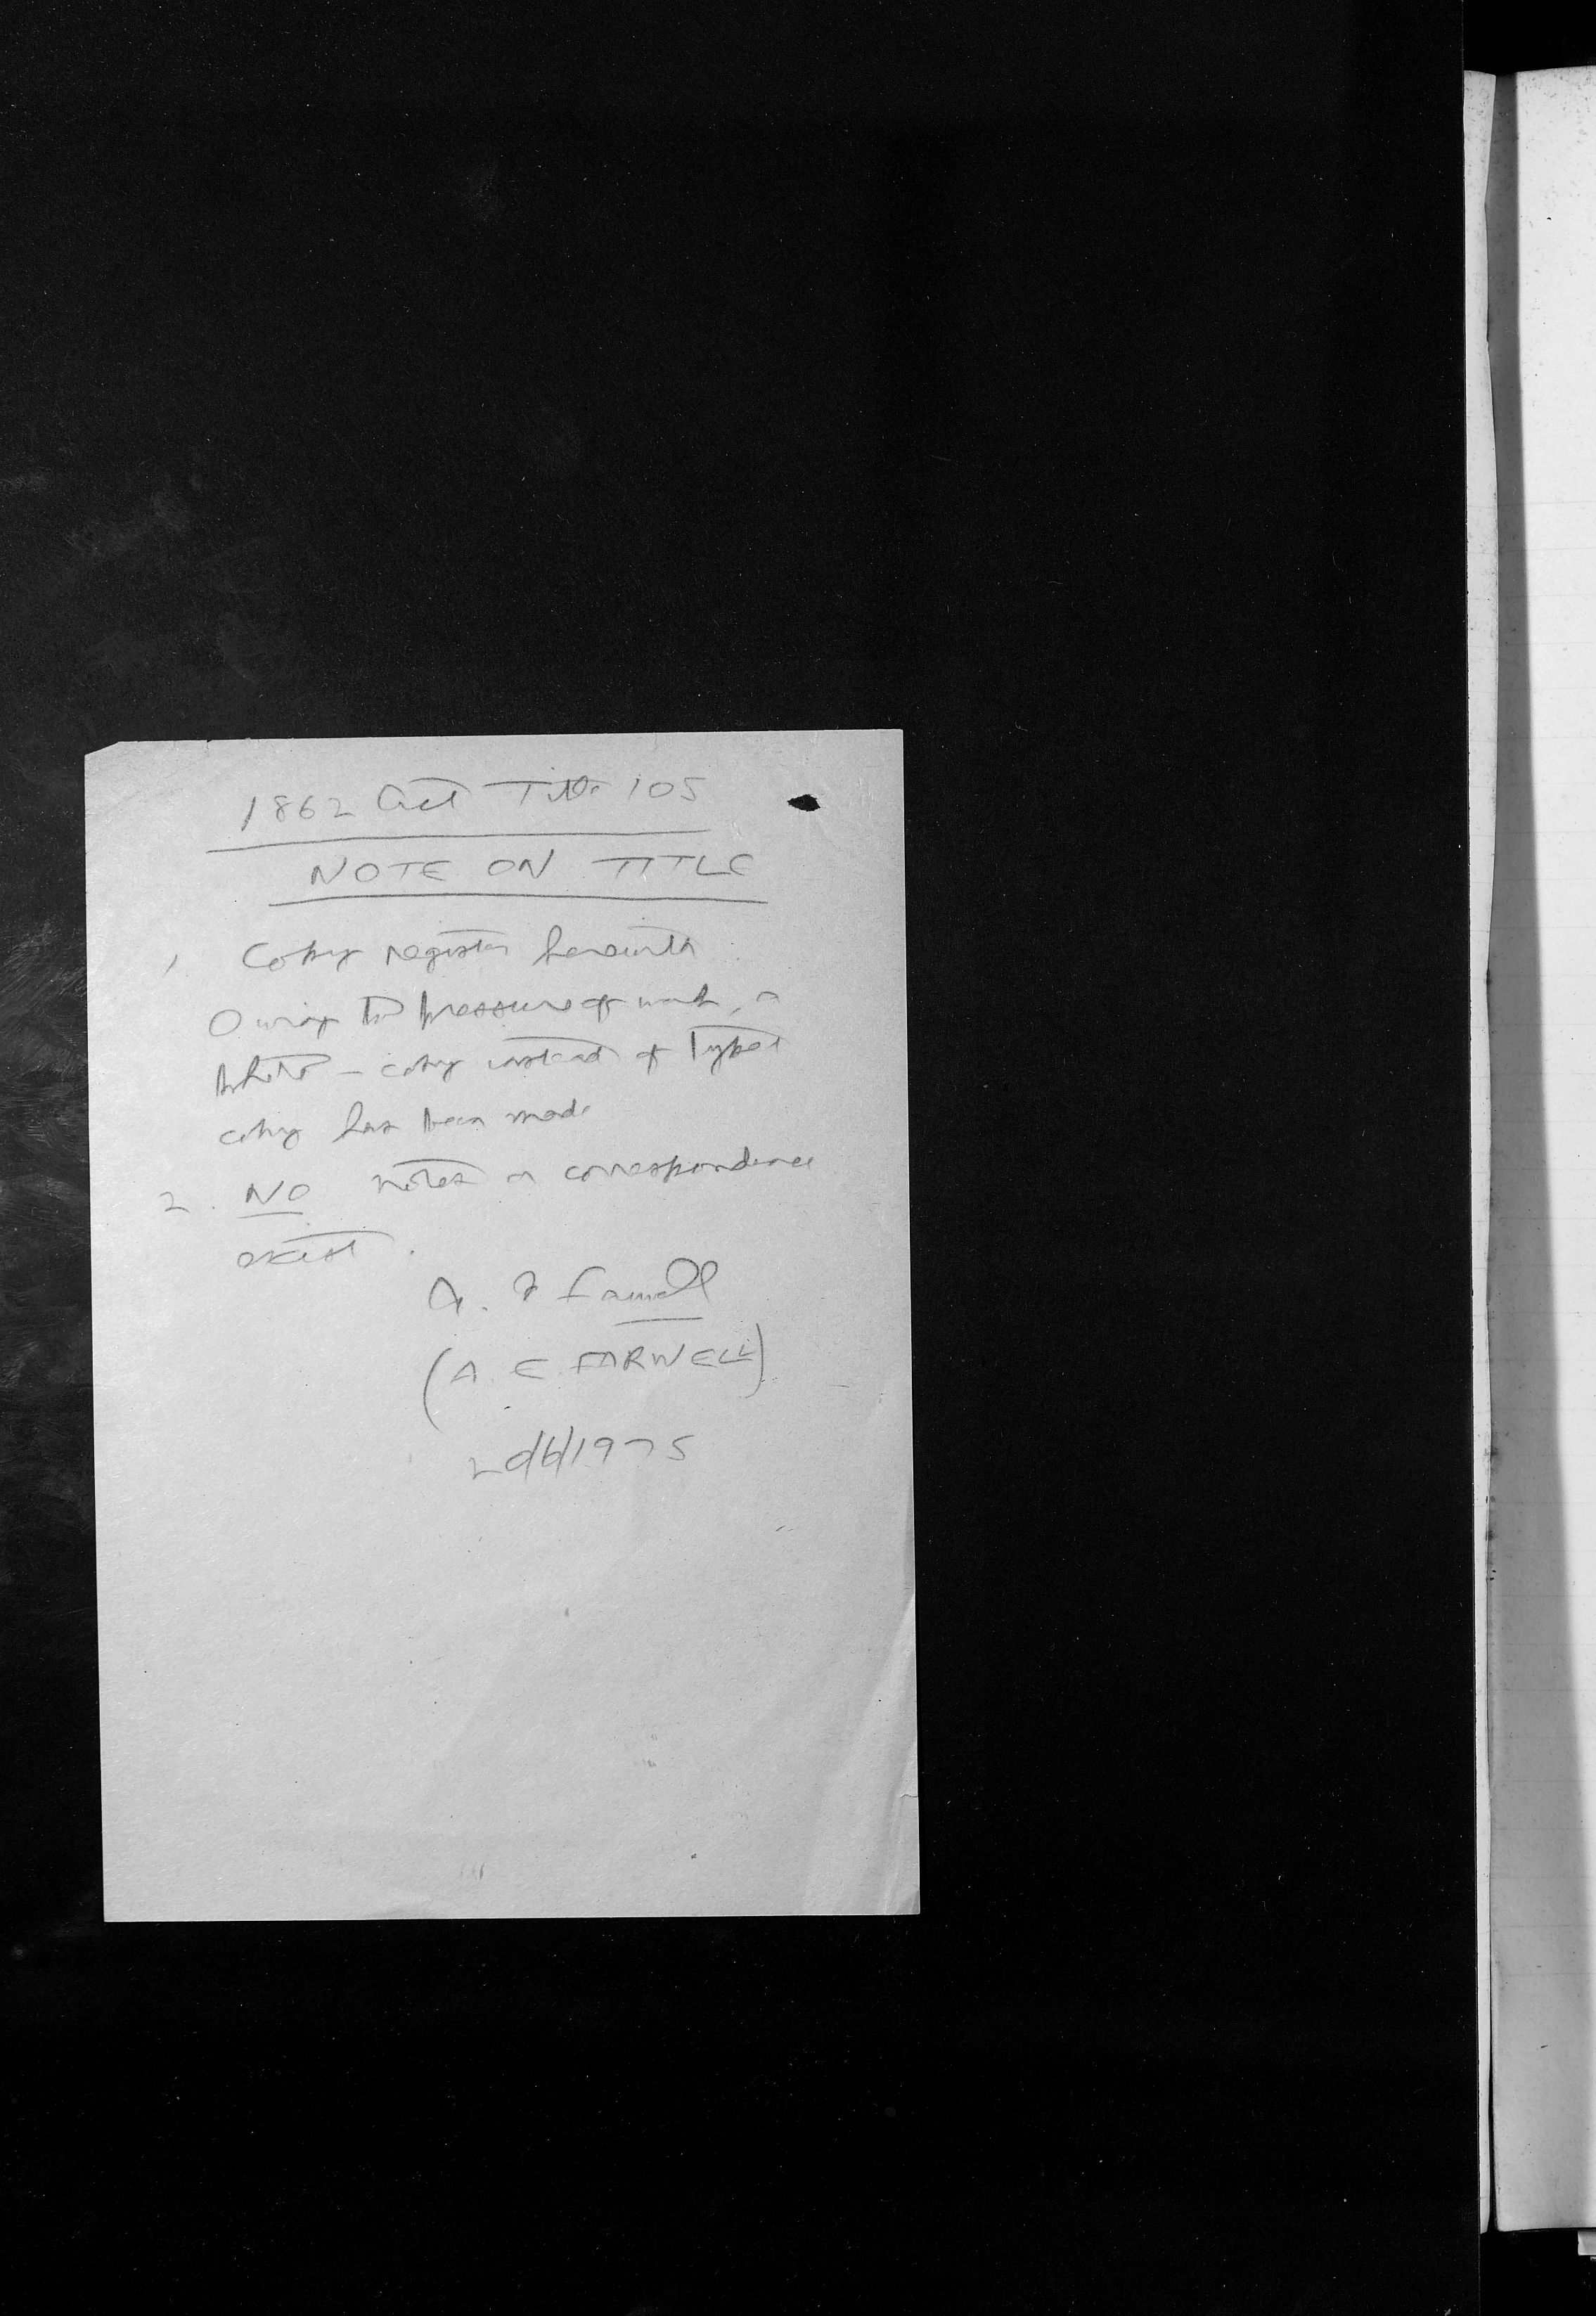 1862 Act Title 105
NOTE ON TITLE
1. Copy register herewith.
Owing to pressure of work, a
photo-copy instead of typed
copy has been made
2. NO notes or correspondence
exist.
A. E Farwell
(A. E. FARWELL)
20/6/1975